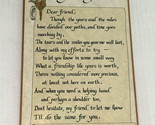 Dear friend,
Though the years and the miles
have divided our paths, and time goes
marching by,
The tears and the smiles you gave me will last,
Along with my efforts to try
to let you know in some small way
What a friendship like yours is worth,
Theres nothing considered more precious,
at least not here on Earth,
And when you need a helping hand
and perhaps a shoulder too,
Dont hesitate, my friend, to let me know
I'll do the same for you.